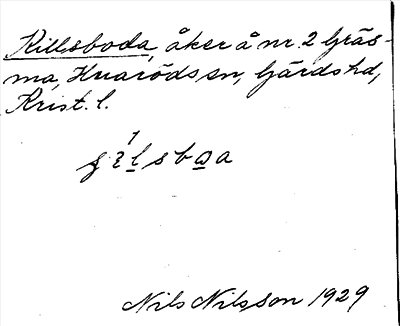 Killsboda, åker å nr 2 Gräs-
ma, Huaröds sn, Gärds hd,
Krist. l.
Nils Nilsson 1929